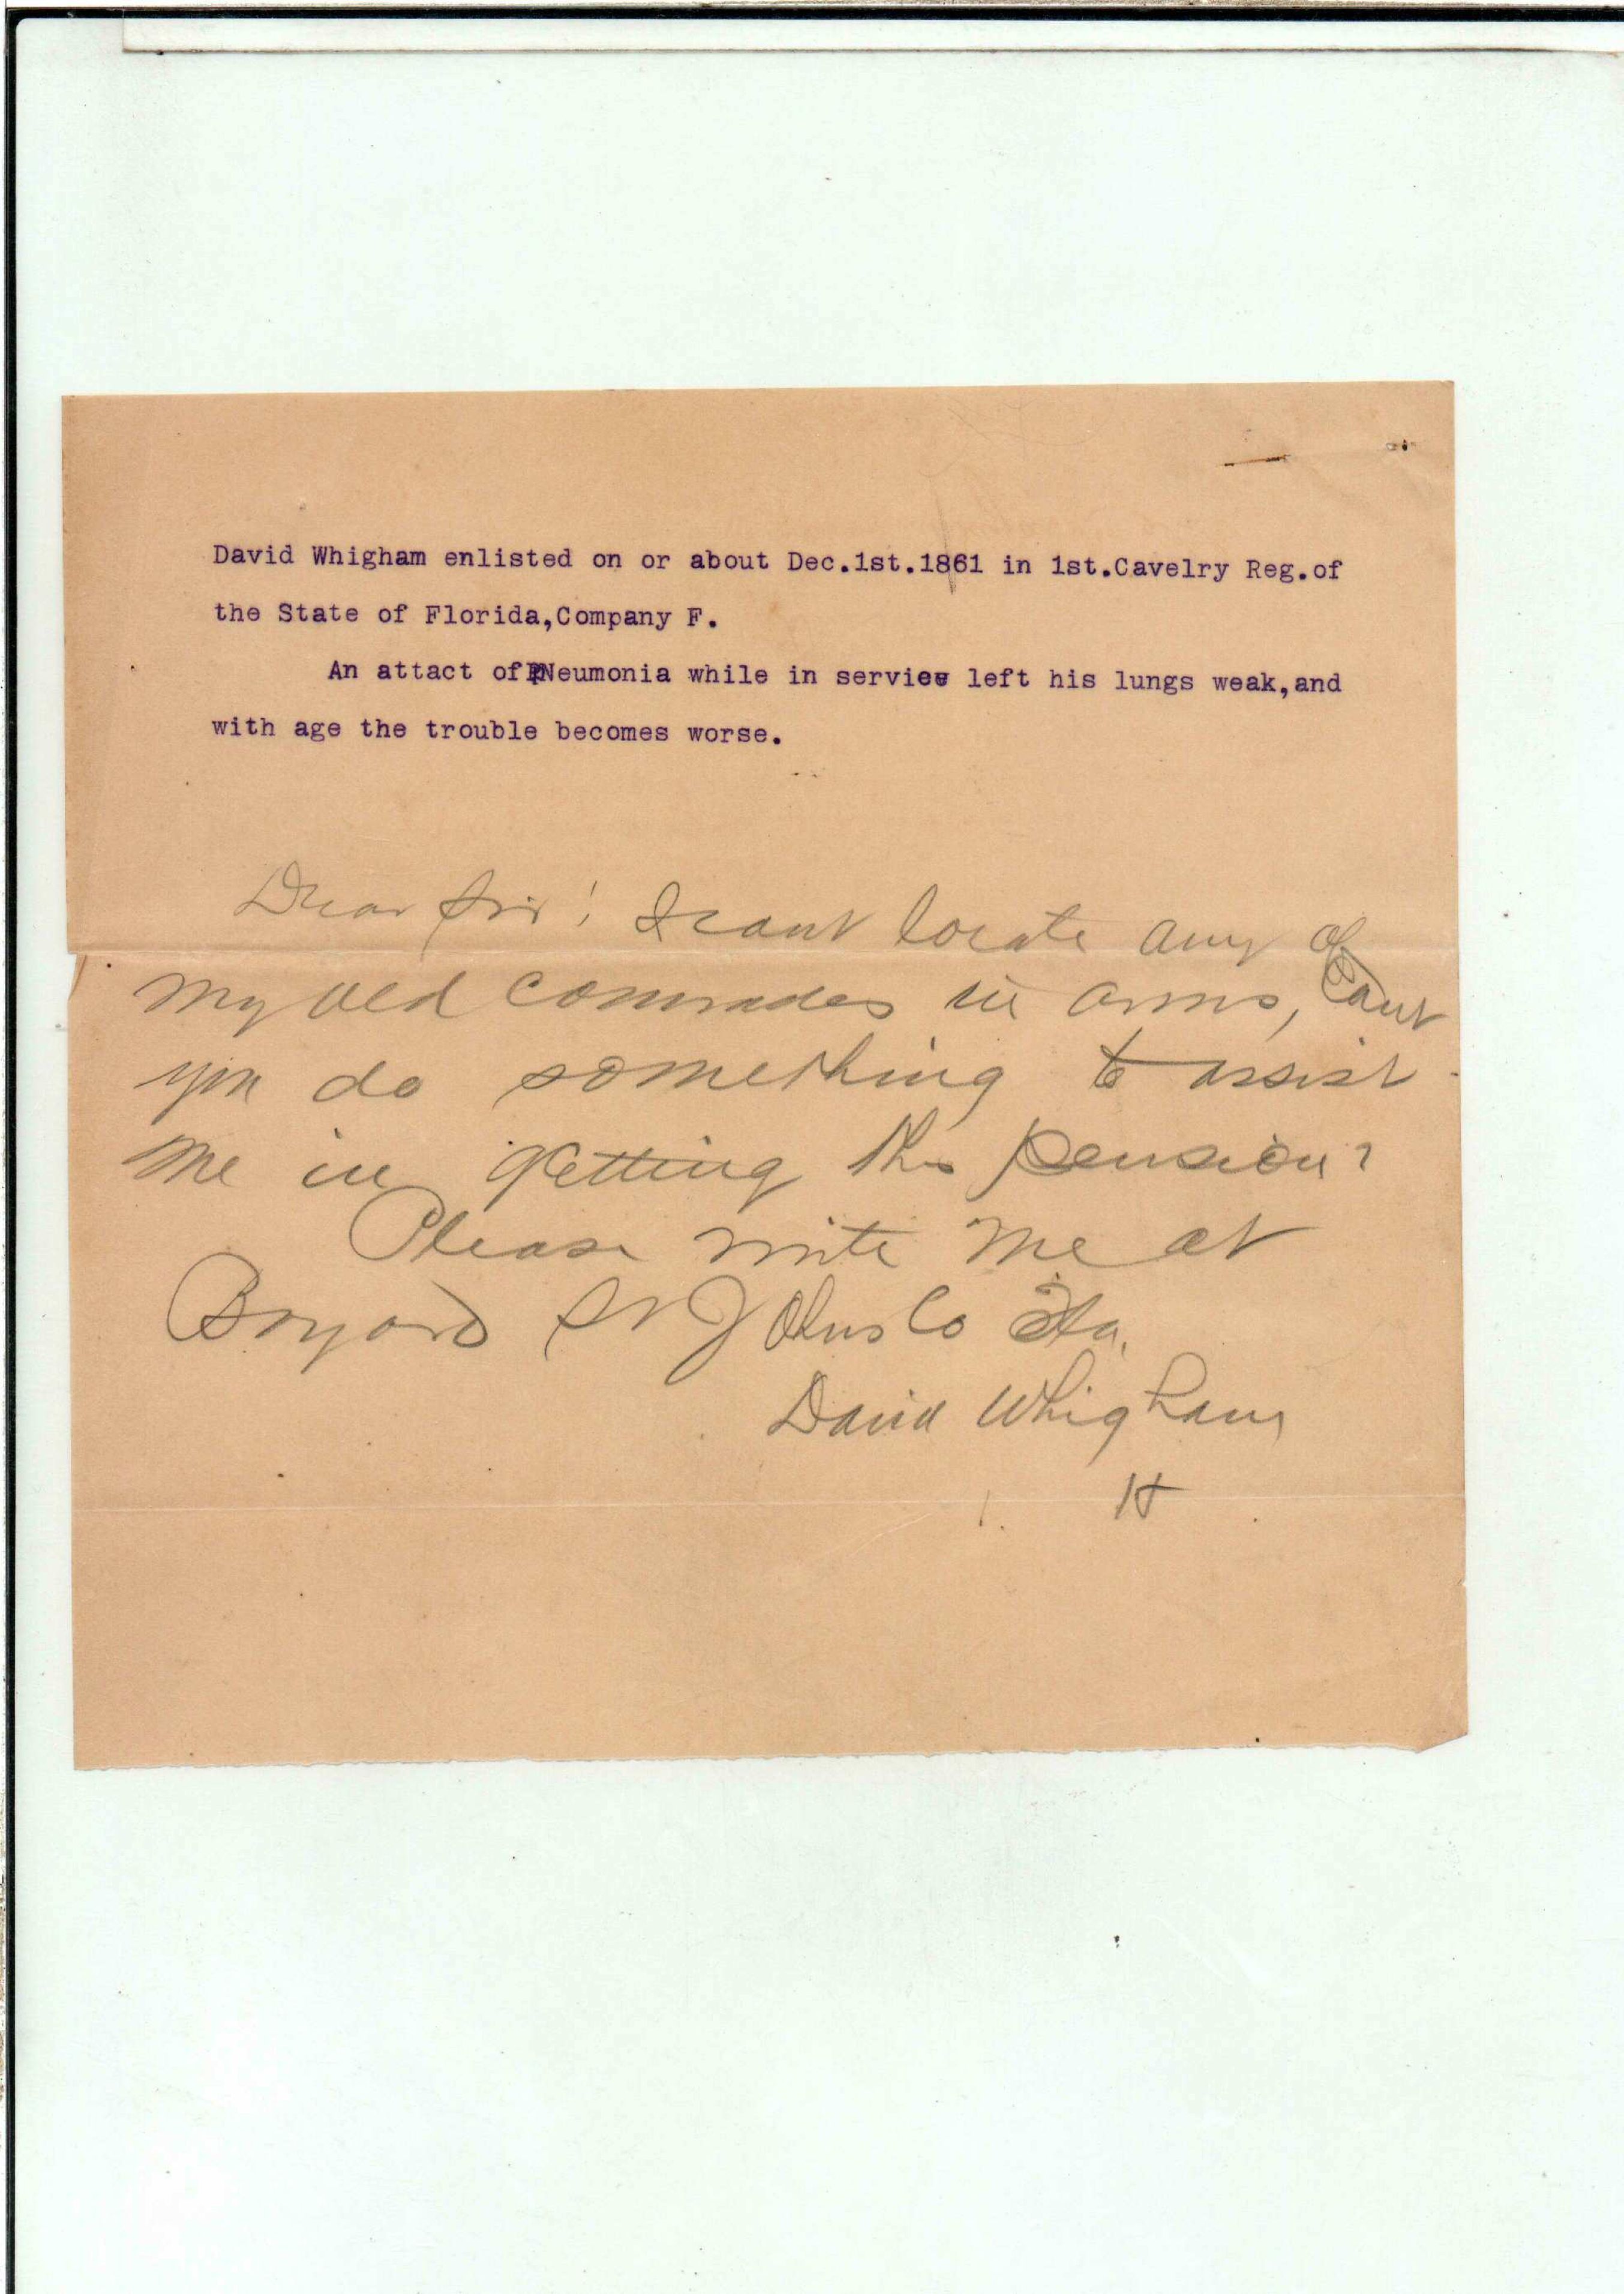 David Whigham enlisted on or about Dec.1st.1861 in 1st.Cavelry Reg.of
the State of Florida,Company F.
An attact of PNeumonia while in service left his lungs weak,and
with age the trouble becomes worse.
Dear Sir! I cant locate any of
my old comrades in arms, Cant
you do something to assist
me in getting this pension?
Please write me at
Bayard St Johns Co Fla.
David Whigham
H